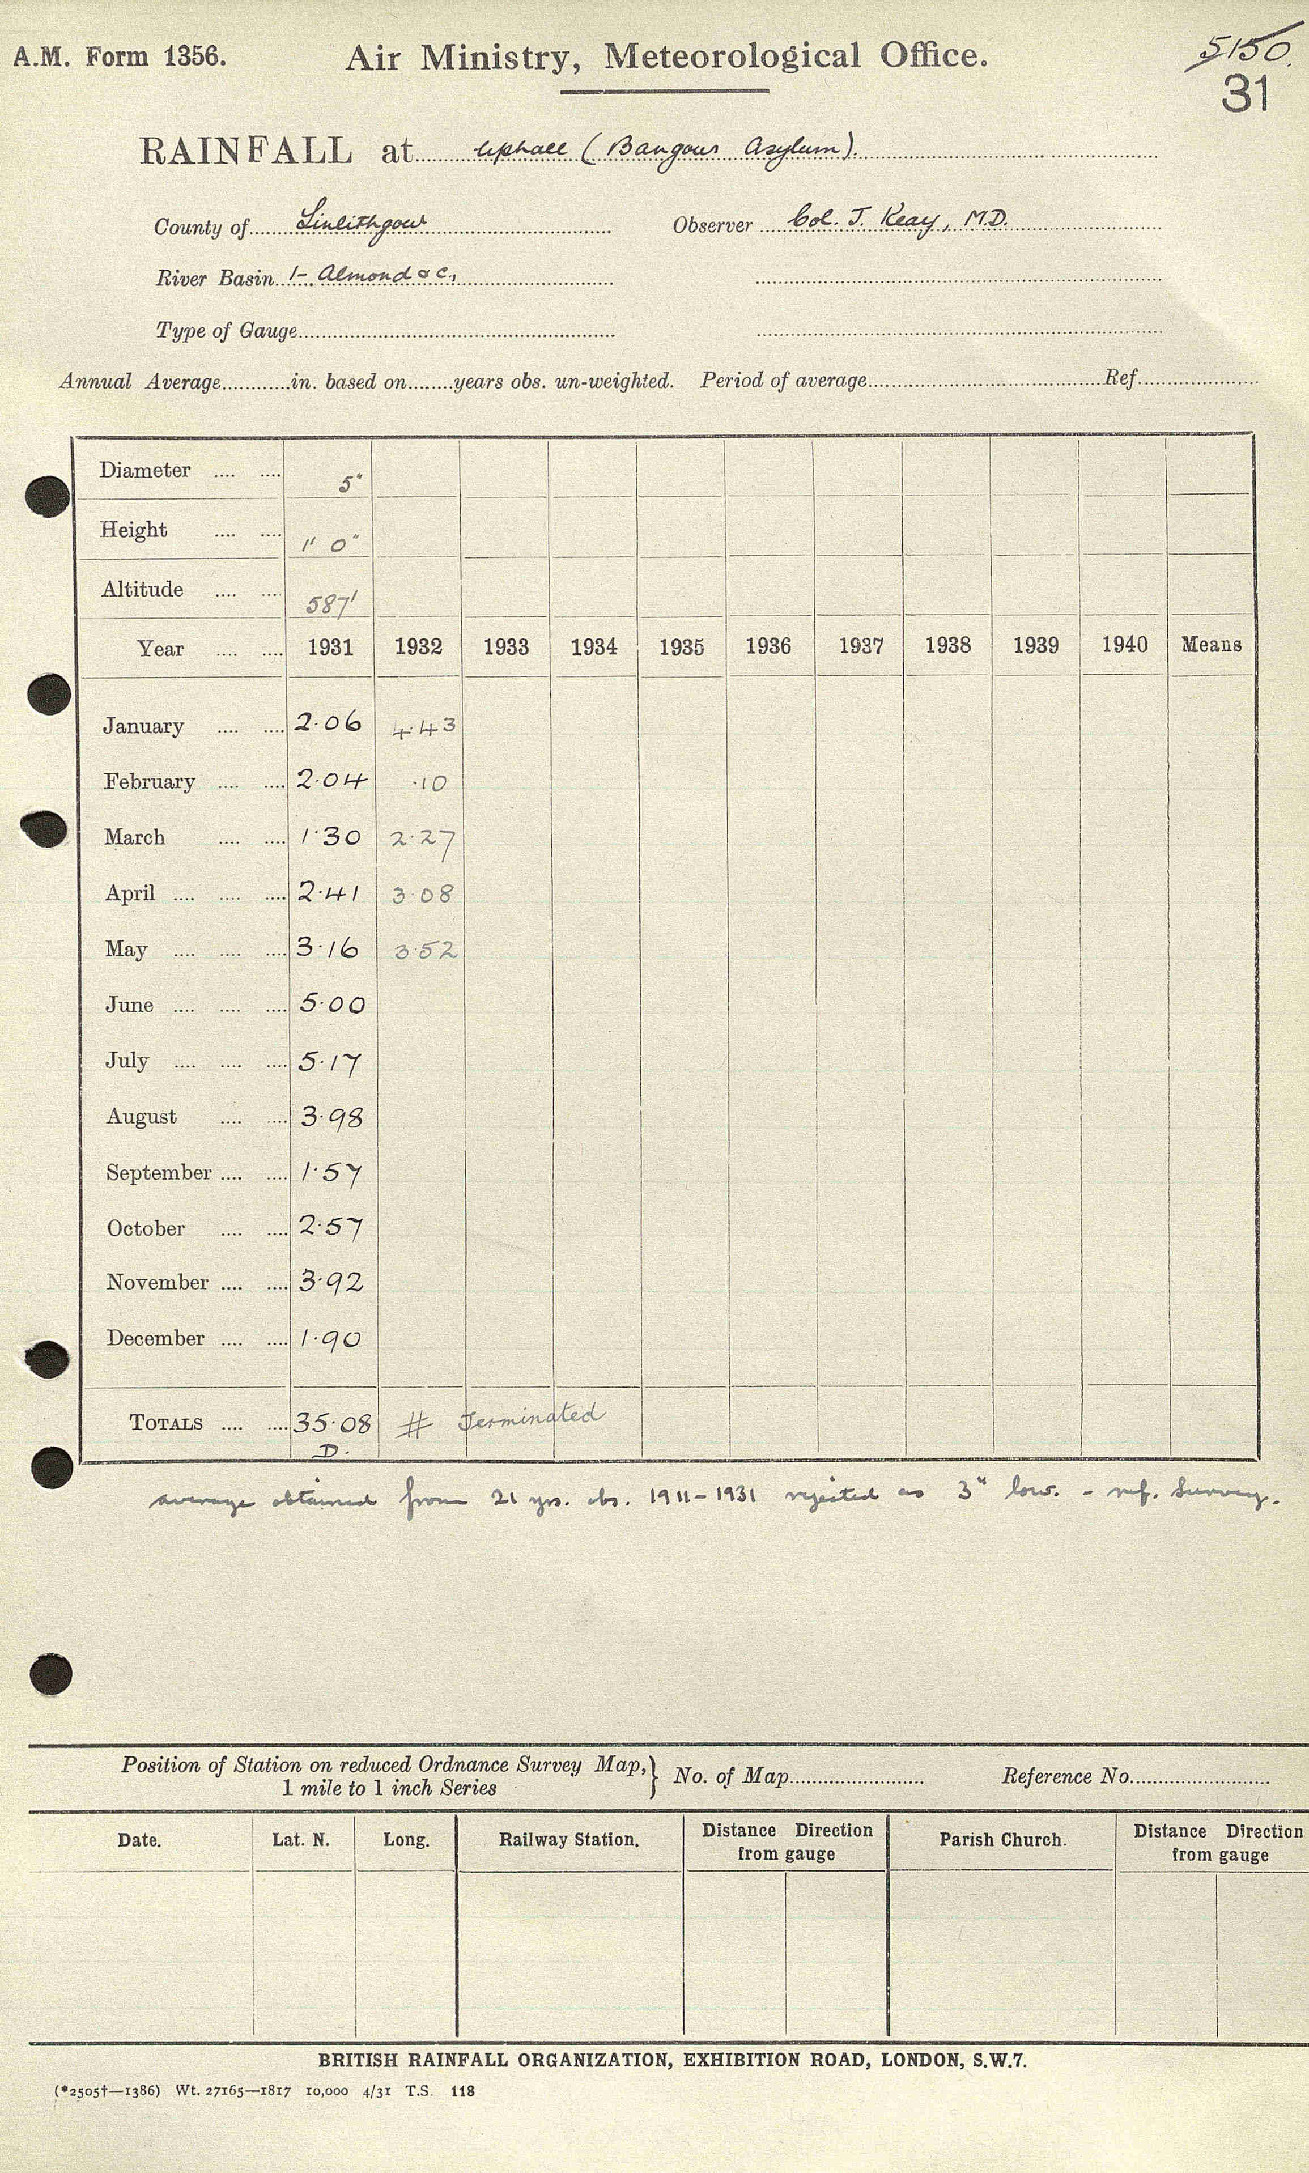 A.M. Form 1356. Air Ministry, Meteorological Office. 5150.
31
RAINFALL at Uphall (Bangour Asylum).
County of Linlithgow Observer Col. J. Keay, M.D.
River Basin 1-. Almond &c.
Type of Gauge
Annual Average in. based on years obs. un-weighted. Period of average Ref.
Diameter 5"
Height 1' 0"
Altitude 587'
Year 1931 1932 1933 1934 1935 1936 1937 1938 1939 1940 Means
January 2.06 4.43
February 2.04 .10
March 1.30 2.27
April 2.41 3.08
May 3.16 3.52
June 5.00
July 5.17
August 3.98
September 1.57
October 2.57
November 3.92
December 1.90
TOTALS 35.08 # Terminated
D.
average obtained from 21 yrs. obs. 1911-1931 rejected as 3" low. - ref. Survey.
Position of Station on reduced Ordnance Survey Map, } No. of Map Reference No.
1 mile to 1 inch Series
Date. Lat. N. Long. Railway Station. Distance Direction from gauge Parish Church. Distance Direction from gauge
BRITISH RAINFALL ORGANIZATION, EXHIBITION ROAD, LONDON, S.W.7.
(*2505†—1386) Wt. 27165—1817 10,000 4/31 T.S. 118